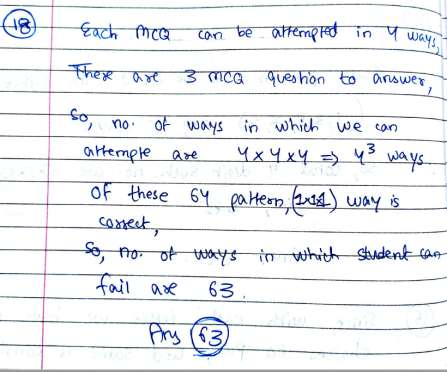 18 Each MCQ can be attempted in 4 ways,
There are 3 MCQ question to answer,
So, no. of ways in which we can
attempte are 4x4x4 => 4³ ways.
Of these 64 pattern, (1x1x1) way is
correct,
So, no. of ways in which student can
fail are 63.
Ans 63